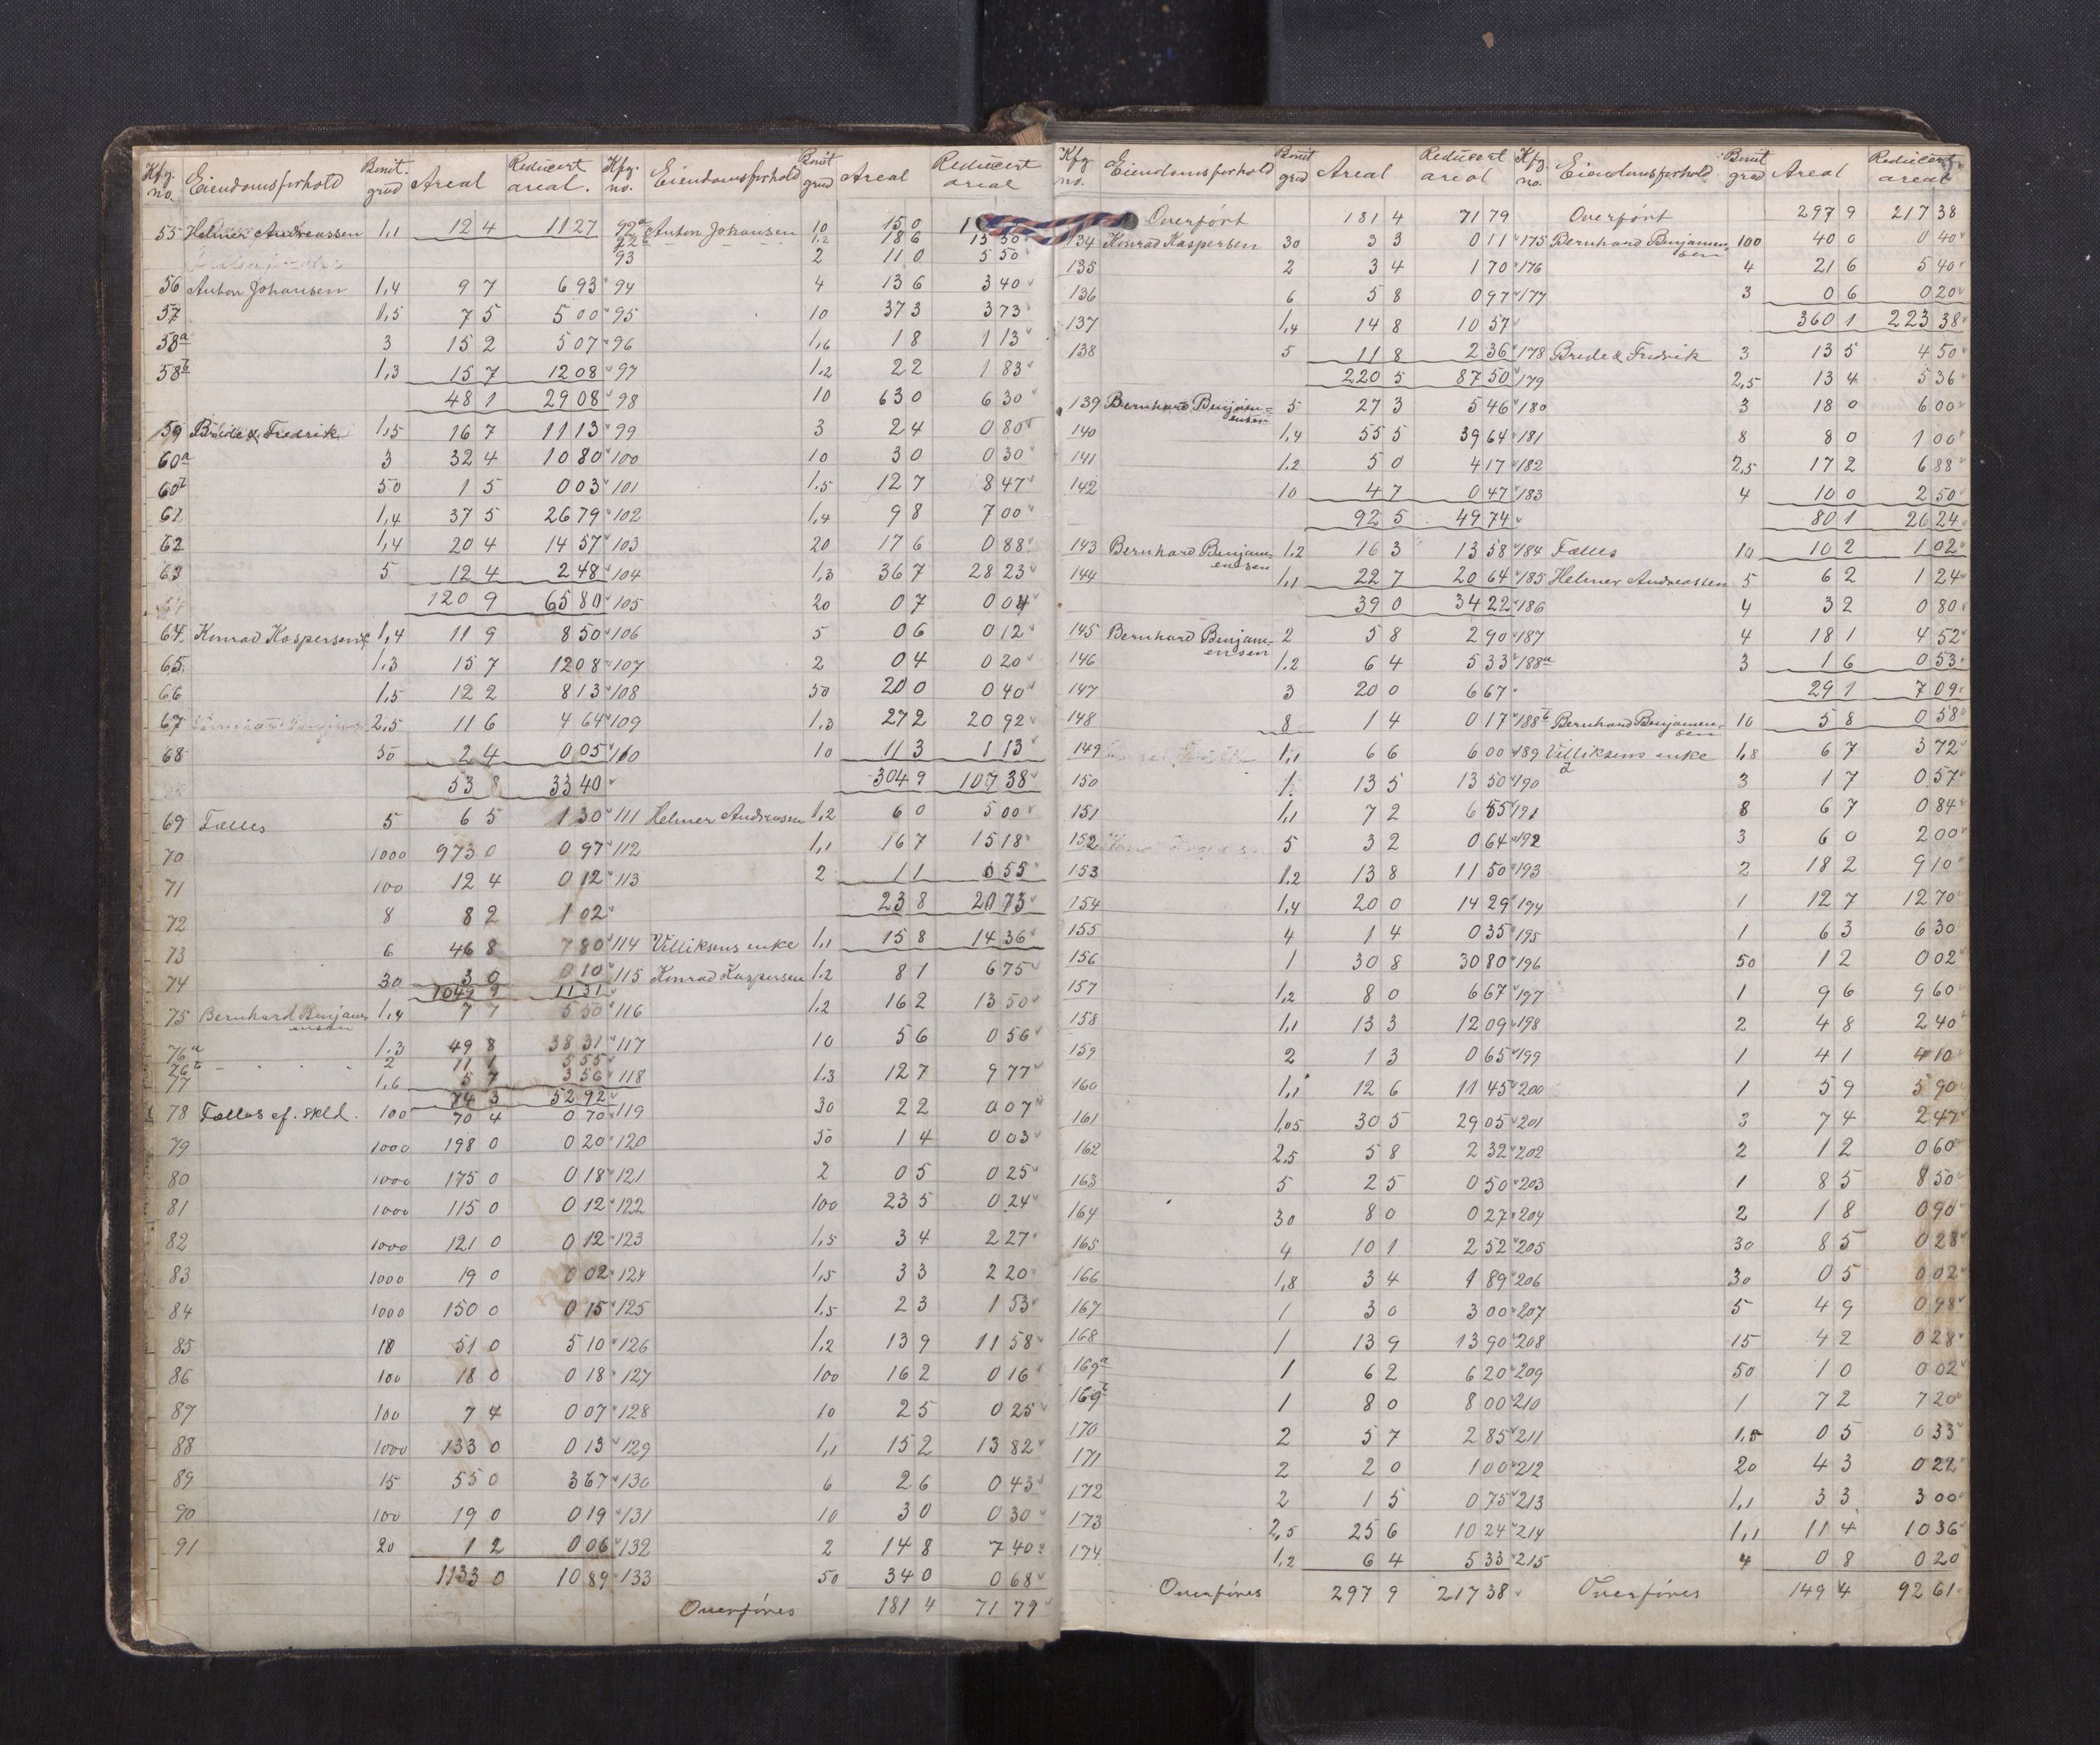 Kfg. no. Eiendomsforhold Bonit. grad Areal Reducert areal.
55 Helmer Andreassen 1,1 12 4 11 27
56 Anton Johansen 1,4 9 7 6 93
57 1,5 7 5 5 00
58a 3 15 2 5 07
58b 1,3 15 7 12 08
48 1 29 08
59 Brede & Fredrik 1,5 16 7 11 13
60a 3 32 4 10 80
60b 50 1 5 0 03
61 1,4 37 5 26 79
62 1,4 20 4 14 57
63 5 12 4 2 48
120 9 65 80
64 Konrad Kaspersen 1,4 11 9 8 50
65 1,3 15 7 12 08
66 1,5 12 2 8 13
67 2,5 11 6 4 64
68 50 2 4 0 05
53 8 33 40
69 Fælles 5 6 5 1 30
70 1000 973 0 0 97
71 100 12 4 0 12
72 8 8 2 1 02
73 6 46 8 7 80
74 30 3 0 0 10
1049 9 11 31
75 Bernhard Benjamensen 1,4 7 7 5 50
76a 1,3 49 8 38 31
76b 2 11 1 5 55
77 1,6 5 7 3 56
74 3 52 92
78 Fælles ef. skld. 100 70 4 0 70
79 1000 198 0 0 20
80 1000 175 0 0 18
81 1000 115 0 0 12
82 1000 121 0 0 12
83 1000 19 0 0 02
84 1000 150 0 0 15
85 10 51 0 5 10
86 100 18 0 0 18
87 100 7 4 0 07
88 1000 133 0 0 13
89 15 55 0 3 67
90 100 19 0 0 19
91 20 1 2 0 06
1133 0 10 89
Kfg. no. Eiendomsforhold Bonit grad Areal Reducert areal
92a Anton Johansen 10 15 0 1
92b 1,2 18 6 15 50
93 2 11 0 5 50
94 4 13 6 3 40
95 10 37 3 3 73
96 1,6 1 8 1 13
97 1,2 2 2 1 83
98 10 63 0 6 30
99 3 2 4 0 80
100 10 3 0 0 30
101 1,5 12 7 8 47
102 1,4 9 8 7 00
103 20 17 6 0 88
104 1,3 36 7 28 23
105 20 0 7 0 04
106 5 0 6 0 12
107 2 0 4 0 20
108 50 20 0 0 40
109 1,3 27 2 20 92
110 10 11 3 1 13
304 9 107 38
111 Helmer Andreassen 1,2 6 0 5 00
112 1,1 16 7 15 18
113 2 1 1 0 55
23 8 20 73
114 Villiksens enke 1,1 15 8 14 36
115 Konrad Kaspersen 1,2 8 1 6 75
116 1,2 16 2 13 50
117 10 5 6 0 56
118 1,3 12 7 9 77
119 30 2 2 0 07
120 50 1 4 0 03
121 2 0 5 0 25
122 100 23 5 0 24
123 1,5 3 4 2 27
124 1,5 3 3 2 20
125 1,5 2 3 1 53
126 1,2 13 9 11 58
127 100 16 2 0 16
128 10 2 5 0 25
129 1,1 15 2 13 82
130 6 2 6 0 43
131 10 3 0 0 30
132 2 14 8 7 40
133 50 34 0 0 68
Overføres 181 4 71 79
Kfg. no. Eiendomsforhold Bonit grad Areal Reducert areal
Overført 181 4 71 79
134 Konrad Kaspersen 30 3 3 0 11
135 2 3 4 1 70
136 6 5 8 0 97
137 1,4 14 8 10 57
138 5 11 8 2 36
220 5 87 50
139 Bernhard Benjamensen 5 27 3 5 46
140 1,4 55 5 39 64
141 1,2 5 0 4 17
142 10 4 7 0 47
92 5 49 74
143 Bernhard Benjamensen 1,2 16 3 13 58
144 1,1 22 7 20 64
39 0 34 22
145 Bernhard Benjamensen 2 5 8 2 90
146 1,2 6 4 5 33
147 3 20 0 6 67
148 8 1 4 0 17
149 1,1 6 6 6 00
150 1 13 5 13 50
151 1,1 7 2 6 55
152 5 3 2 0 64
153 1,2 13 8 11 50
154 1,4 20 0 14 29
155 4 1 4 0 35
156 1 30 8 30 80
157 1,2 8 0 6 67
158 1,1 13 3 12 09
159 2 1 3 0 65
160 1,1 12 6 11 45
161 1,05 30 5 29 05
162 2,5 5 8 2 32
163 5 2 5 0 50
164 30 8 0 0 27
165 4 10 1 2 52
166 1,8 3 4 1 89
167 1 3 0 3 00
168 1 13 9 13 90
169a 1 6 2 6 20
169b 1 8 0 8 00
170 2 5 7 2 85
171 2 2 0 1 00
172 2 1 5 0 75
173 2,5 25 6 10 24
174 1,2 6 4 5 33
Overføres 297 9 217 38
Kfg. no. Eiendomsforhold Bonit grad Areal Reducert areal
Overført 297 9 217 38
175 Bernhard Benjamensen 100 40 0 0 40
176 4 21 6 5 40
177 3 0 6 0 20
360 1 223 38
178 Brede & Fredrik 3 13 5 4 50
179 2,5 13 4 5 36
180 3 18 0 6 00
181 8 8 0 1 00
182 2,5 17 2 6 88
183 4 10 0 2 50
80 1 26 24
184 Fælles 10 10 2 1 02
185 Helmer Andreassen 5 6 2 1 24
186 4 3 2 0 80
187 4 18 1 4 52
188a 3 1 6 0 53
29 1 7 09
188b Bernhard Benjamensen 10 5 8 0 58
189 Villiksens enke 1,8 6 7 3 72
190 3 1 7 0 57
191 8 6 7 0 84
192 3 6 0 2 00
193 2 18 2 9 10
194 1 12 7 12 70
195 1 6 3 6 30
196 50 1 2 0 02
197 1 9 6 9 60
198 2 4 8 2 40
199 1 4 1 4 10
200 1 5 9 5 90
201 3 7 4 2 47
202 2 1 2 0 60
203 1 8 5 8 50
204 2 1 8 0 90
205 30 8 5 0 28
206 30 0 5 0 02
207 5 4 9 0 98
208 15 4 2 0 28
209 50 1 0 0 02
210 1 7 2 7 20
211 1,5 0 5 0 33
212 20 4 3 0 22
213 1,1 3 3 3 00
214 1,1 11 4 10 36
215 4 0 8 0 20
Overføres 149 4 92 61